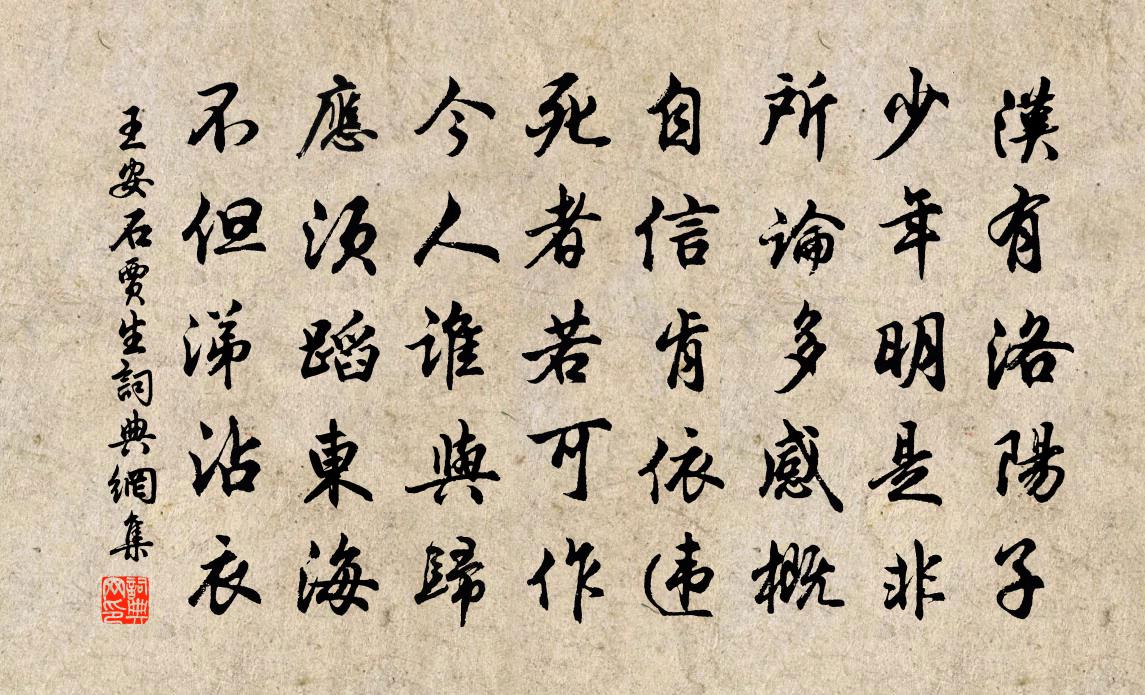 漢有洛陽子
少年明是非
所論多感概
自信肯依违
死者若可作
今人誰與歸
應須蹈東海
不但涕沾衣
王安石賈生詞典網集
詞典网印